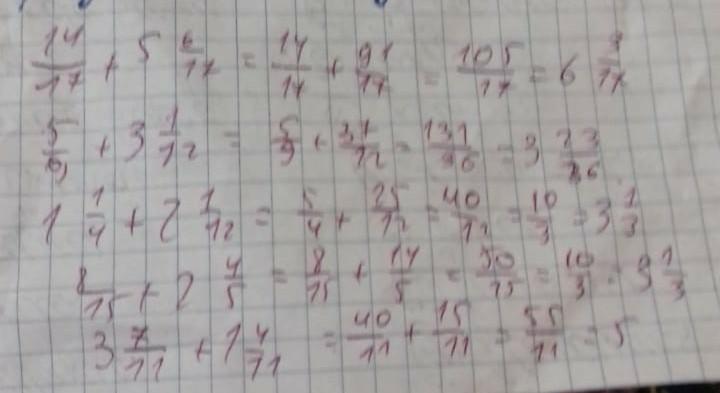 14/17 + 5 6/17 = 14/17 + 91/17 = 105/17 = 6 3/17
5/9 + 3 1/12 = 5/9 + 37/12 = 131/36 = 3 23/36
1 1/4 + 2 1/12 = 5/4 + 25/12 = 40/12 = 10/3 = 3 1/3
8/15 + 2 4/5 = 8/15 + 14/5 = 50/15 = 10/3 = 3 1/3
3 7/11 + 1 4/11 = 40/11 + 15/11 = 55/11 = 5